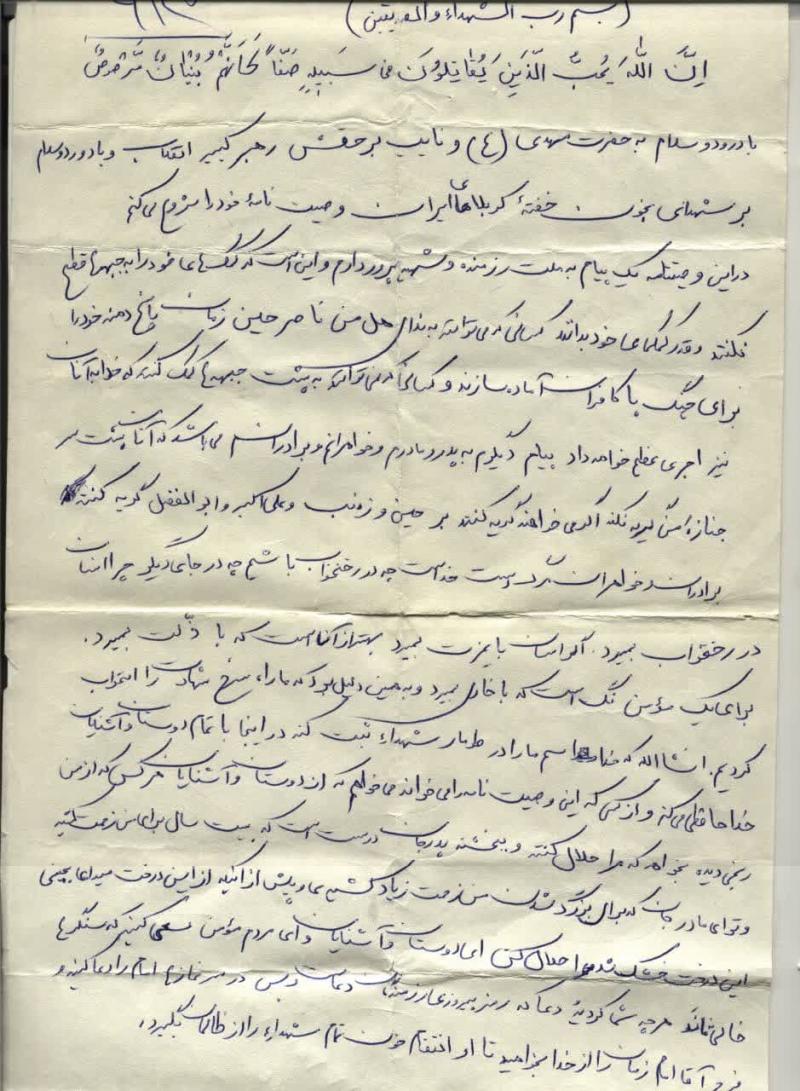 (بسم رب الشهداء والصدیقین)
إِنَّ اللَّهَ يُحِبُّ الَّذِينَ يُقَاتِلُونَ فِي سَبِيلِهِ صَفًّا كَأَنَّهُمْ بُنْيَانٌ مَرْصُوصٌ
با درود و سلام به حضرت مهدی (ع) و نایب بر حقش رهبر کبیر انقلاب و با درود و سلام
بر شهدای بخون خفتۀ کربلاهای ایران وصیت نامۀ خود را شروع می کنم
در این وصیتنامه یک پیام به ملت رزمنده و شهید پرور دارم و این است که کمک های خود را به جبهه ها قطع
نکنند و قدر کمکهای خود بدانند کسانی که می توانند به ندای هل من ناصر حسین زمان پاسخ دهند خود را
برای جنگ با کافران آماده سازند و کسانی که نمی توانند به پشت جبهه ها کمک کنند که خدا به آنان
نیز اجری عظیم خواهد داد پیام دیگرم به پدر و مادرم و خواهرانم و برادرانم می باشد که آنان پشت سر
جنازه امن گریه نکنند اگر می خواهند گریه کنند بر حسین و زینب و علی اکبر و ابوالفضل گریه کنند
برادران و خواهران مرگ دست خداست چه در رختخواب باشیم چه در جای دیگر چرا انسان
در رختواب بمیرد. اگر انسان با عزت بمیرد بهتر از آن است که با ذلّت بمیرد.
برای یک مؤمن ننگ است که با خاری بمیرد و به همین دلیل بود که ما راه سرخ شهادت را انتخاب
کردیم. انشاالله که خدا اسم ما را در طومار شهداء ثبت کند در اینجا با تمام دوستان و آشنایان
خداحافظی می کنم و از کسی که این وصیت نامه را می خواند می خواهم که از دوستان و آشنایان هر کس که از من
رنجی دیده بخواهد که مرا حلال کنند و ببخشند پدر جان درست است که بیست سال برای من زحمت کشیدید
و توای مادر جان که برای بزرگ شدن من زحمت زیاد کشیدی و پیش از آنکه از این درخت میوه ای بچینی
این درخت خشک شد مرا حلال کن ای دوستان و آشنایان و ای مردم مؤمن سعی کنید که سنگرها
خالی نماند هر چه شما کردید دعا که رمز پیروزی رزمندگان دعاست پس در سر نمازها امام را دعا کنید و
فرج آقا امام زمان را از خدا بخواهید تا او انتقام خون تمام شهداء را از ظالمان بگیرد.